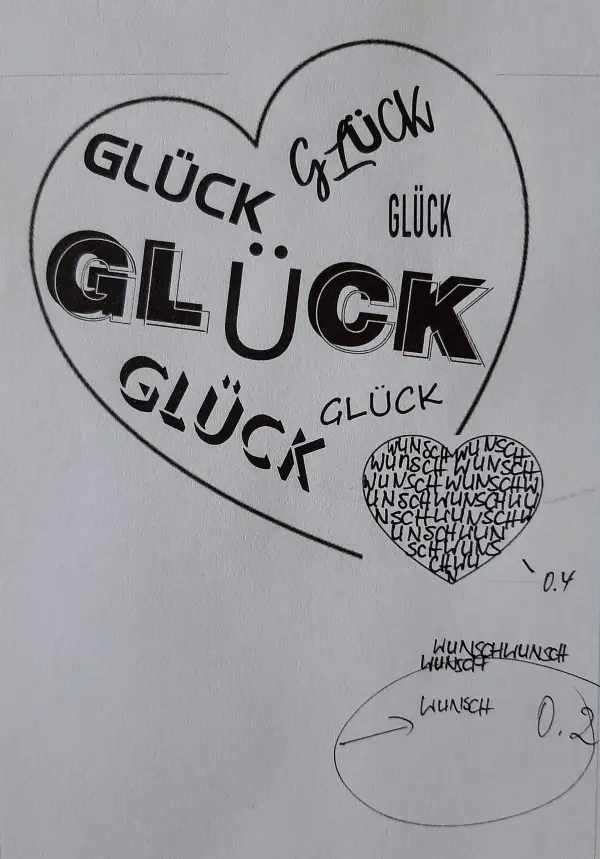 GLÜCK
GLÜCK
GLÜCK
GLÜCK
GLÜCK
GLÜCK
WUNSCHWUNSCH
WUNSCH WUNSCH
WUNSCH WUNSCHW
UNSCHWUNSCHWU
NSCHWUNSCHW
UNSCHWUN
SCHWUNS
CHWU
N
0.4
WUNSCHWUNSCH
WUNSCH
WUNSCH
0.2